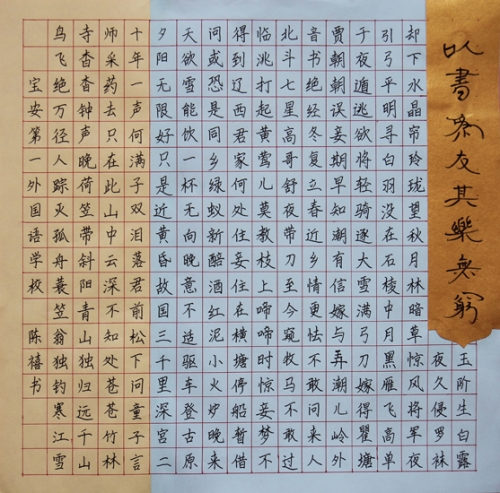 以書爲友其樂無窮
玉阶生白露
夜久侵罗袜
却下水晶帘玲珑望秋月林暗草惊风将军夜
引弓平明寻白羽没在石棱中月黑雁飞高单
于夜遁逃欲将轻骑逐大雪满弓刀嫁得瞿塘
贾朝朝误妾期早知潮有信嫁与弄潮儿岭外
音书绝经冬复立春近乡情更怯不敢问来人
北斗七星高哥舒夜带刀至今窥牧马不敢过
临洮打起黄莺儿莫教枝上啼啼时惊妾梦不
得到辽西君家何处住妾住在横塘停船暂借
问或恐是同乡绿蚁新醅酒红泥小火炉晚来
天欲雪能饮一杯无向晚意不适驱车登古原
夕阳无限好只是近黄昏故国三千里深宫二
十年一声何满子双泪落君前松下问童子言
师采药去只在此山中云深不知处苍苍竹林
寺杳杳钟声晚荷笠带斜阳青山独归远千山
鸟飞绝万径人踪灭孤舟蓑笠翁独钓寒江雪
宝安第一外国语学校 陈禧书